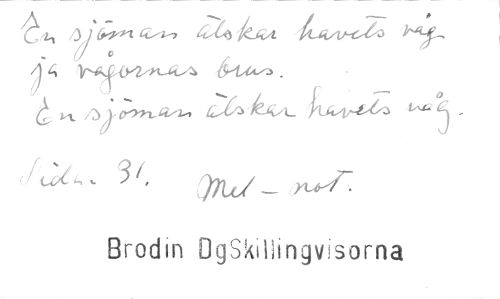 En sjöman älskar havets våg
ja vågornas brus.
En sjöman älskar havets våg.
Sidan 31. Mel - not.
Brodin DgSkillingvisorna